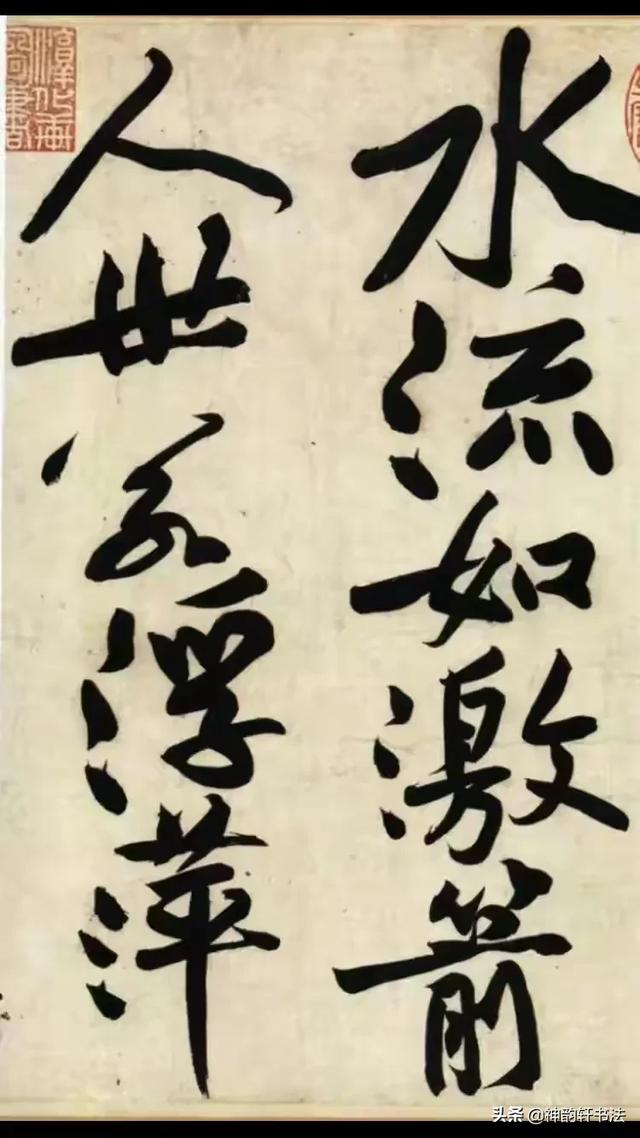 水流如激箭
人世若浮萍
头条 @神韵轩书法